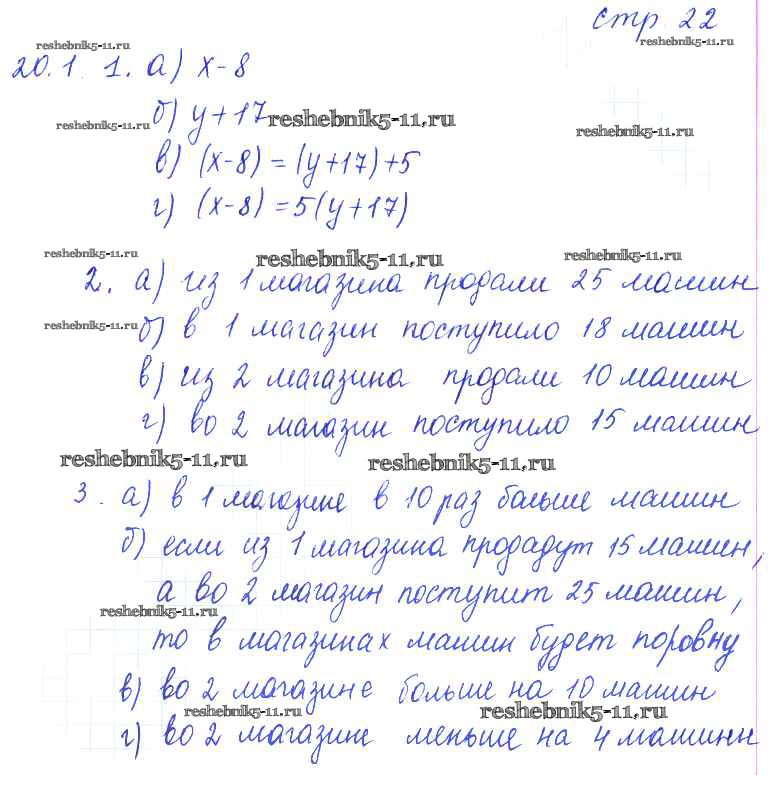 стр 22
reshebnik5-11.ru reshebnik5-11.ru
20.1. 1. а) x-8
reshebnik5-11.ru б) y+17 reshebnik5-11.ru reshebnik5-11.ru
в) (x-8) = (y+17)+5
г) (x-8) = 5(y+17)
reshebnik5-11.ru reshebnik5-11.ru reshebnik5-11.ru
2. а) из 1 магазина продали 25 машин
reshebnik5-11.ru б) в 1 магазин поступило 18 машин
в) из 2 магазина продали 10 машин
г) во 2 магазин поступило 15 машин
reshebnik5-11.ru reshebnik5-11.ru
3. а) в 1 магазине в 10 раз больше машин
б) если из 1 магазина продадут 15 машин,
а во 2 магазин поступит 25 машин,
reshebnik5-11.ru
то в магазинах машин будет поровну
в) во 2 магазине больше на 10 машин
reshebnik5-11.ru reshebnik5-11.ru
г) во 2 магазине меньше на 4 машинн